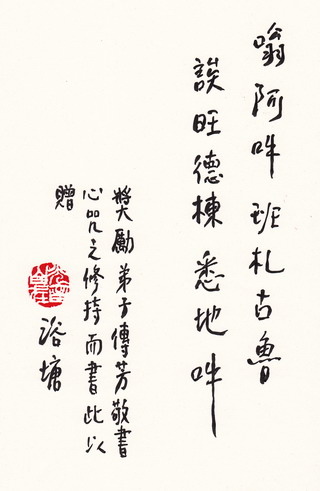 嗡阿吽班札古魯
誒旺德棟悉地吽
獎勵弟子傳芳敬書
心咒之修持而書此以
贈
浴塘